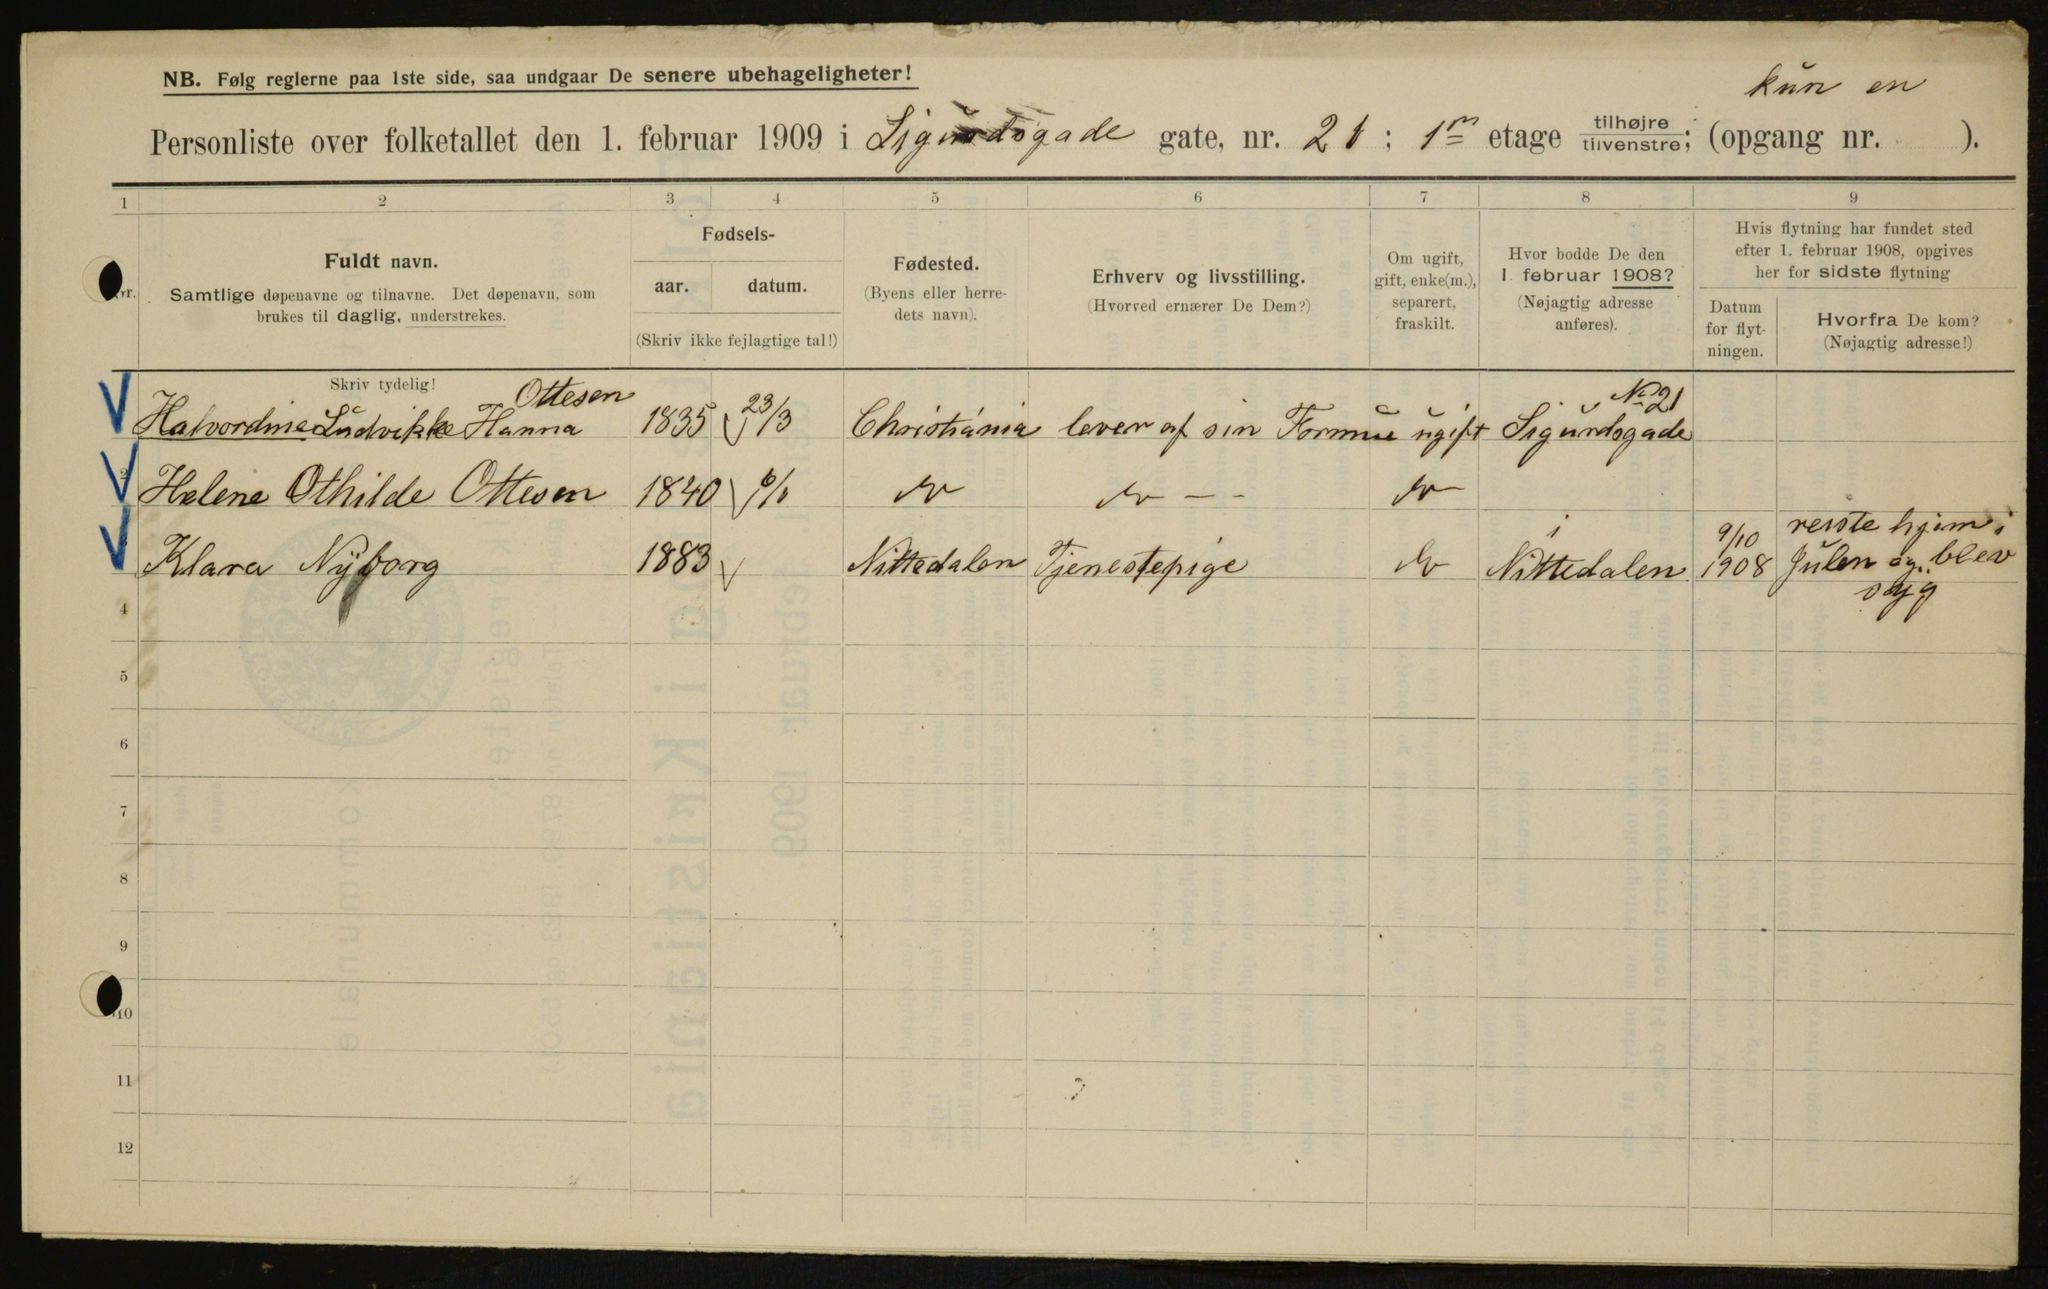 NB. Følg reglerne paa 1ste side, saa undgaar De senere ubehageligheter!
kun en
Personliste over folketallet den 1. februar 1909 i Sigurdsgade gate, nr. 21; 1m etage tilhøjre tilvenstre; (opgang nr. ).
1 2 3 4 5 6 7 8 9
Nr.
Fuldt navn.
Samtlige døpenavne og tilnavne. Det døpenavn, som
brukes til daglig, understrekes.
Skriv tydelig!
Fødsels-
aar. datum.
(Skriv ikke fejlagtige tal!)
Fødested.
(Byens eller herre-
dets navn).
Erhverv og livsstilling.
(Hvorved ernærer De Dem?)
Om ugift,
gift, enke(m.),
separert,
fraskilt.
Hvor bodde De den
1. februar 1908?
(Nøjagtig adresse
anføres).
Hvis flytning har fundet sted
efter 1. februar 1908, opgives
her for sidste flytning
Datum
for flyt-
ningen.
Hvorfra De kom?
(Nøjagtig adresse!)
Ottesen No 21
Halvordine Ludvikke Hanna 1835 23/3 Christiania lever af sin Formue ugift Sigurdsgade
2 Helene Othilde Ottesen 1840 do do - - do
Klara Nyborg 1883 Nittedalen Tjenestepige do i Nittedalen 9/10 1908 reiste hjem i
Julen og blev
syg
4
5
6
7
8
9
10
11
12